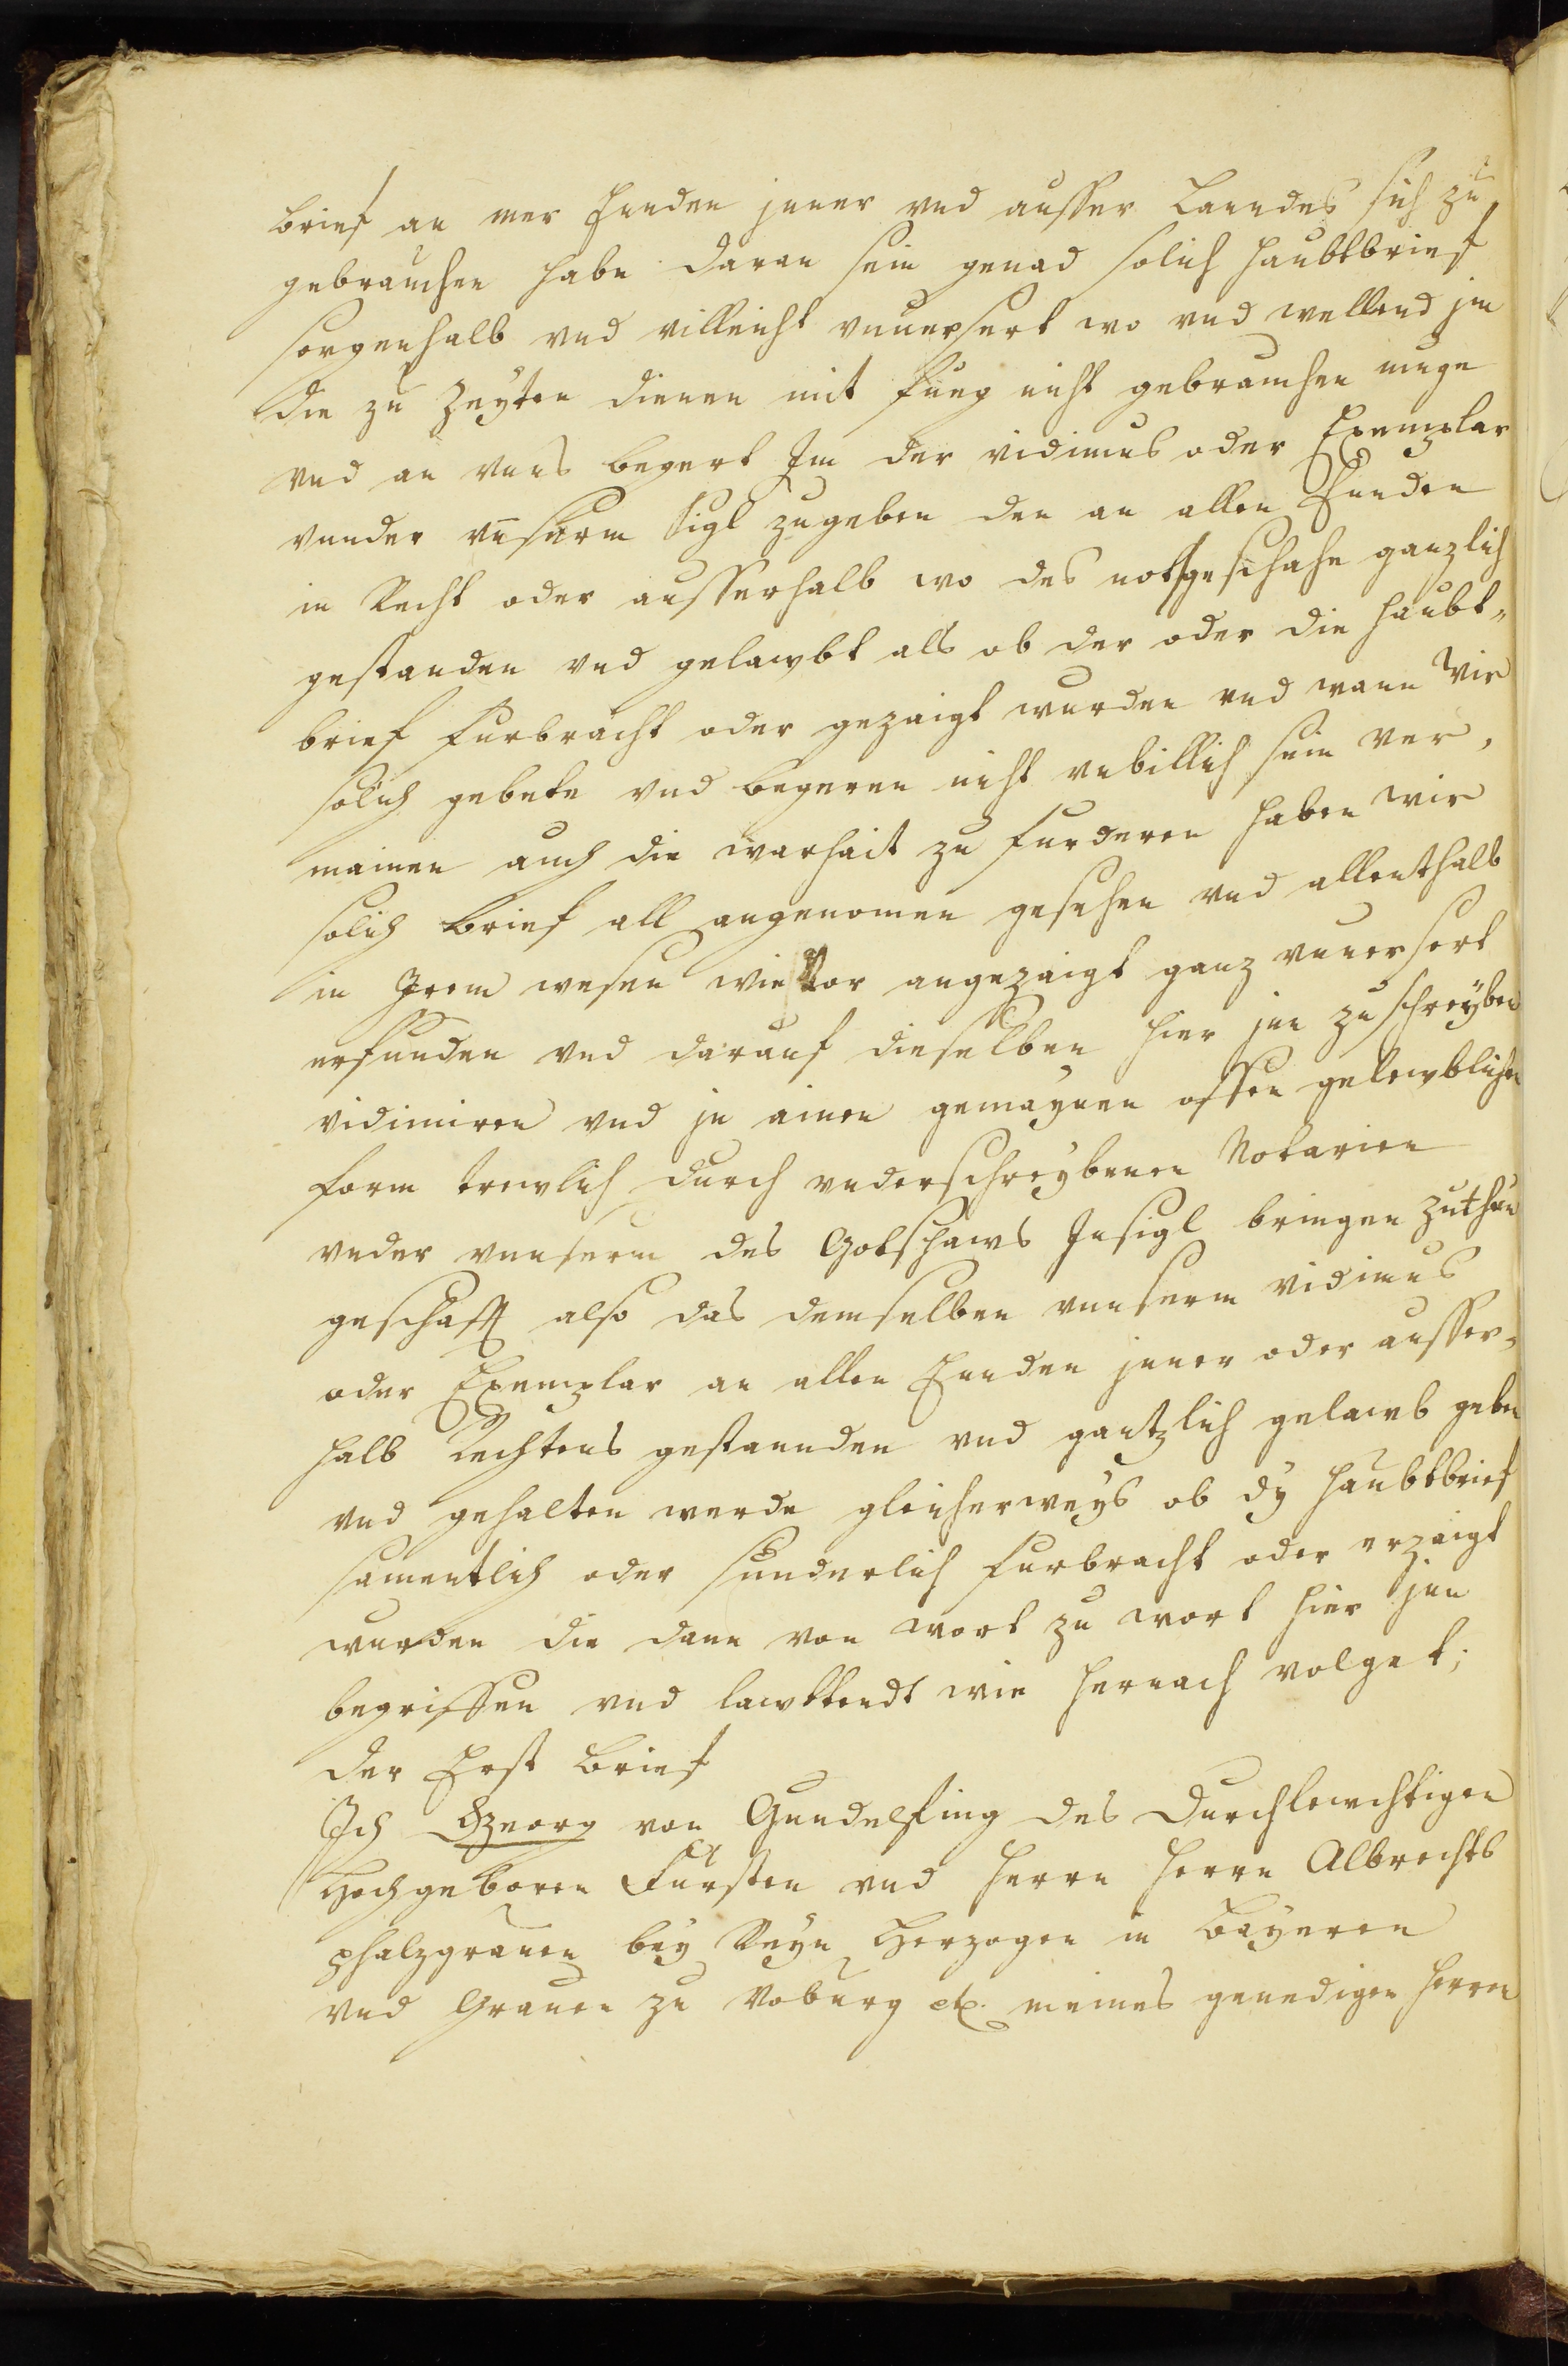 brief an mer Ennden jnner vnd ausser Lanndes sich zu
gebrauchen habe daran sein genad solich haubtbrief
sorgenhalb vnd villeicht vnuersert wo vnd wellend jm
die zu Zeyten dienen mit fueg nicht gebrauchen muge
vnd an vnns begert Im der vidimus oder Exemplar
vnnder vnserm Sigl zugeben den an allen Ennden
in Recht oder ausserhalb wo des notgeschahe ganzlich
gestanden vnd gelawbt als ob der oder die haubt„
brief furbracht oder gezaigt wurden vnd wann Wir
solich gebete vnd begeren nicht vnbillich sein ver„
mainen auch die warhait zu furderen haben wir
solich brief all angenomen gesehen vnd allenthalb
in Irem wesen wie Vor angezaigt ganz vnuersert
erfunden vnd darauf dieselben hier jnn zuschreyben
vidimiren vnd jn ainen gemaynen offen gelewblichen
form trewlich durch vnderschreybenen Notarien
vnder vnnserm des Gotshaws Insigl bringen zuthun
geschafft also das demselben vnnserm vidimus
oder Exemplar an allen Ennden jnner oder ausser„
halb Rechtens gestannden vnd gantzlich gelawb geben
vnd gehalten werde gleicherweys ob dy haubtbrief
samentlich oder sunderlich furbracht oder erzaigt
wurden die dann von wort zu wort hier jnn
begriffen vnd lawttendt wie hernach volget;
der Erst brief
Ich Georg von Gundelfing des Durchlewchtigen
Hochgeboren Fürsten vnd herrn herrn Albrechts
phalzgrauen bey Reyn Herzogen in Bayeren
vnd Grauen zu Voburg etc. meines genedigen herren